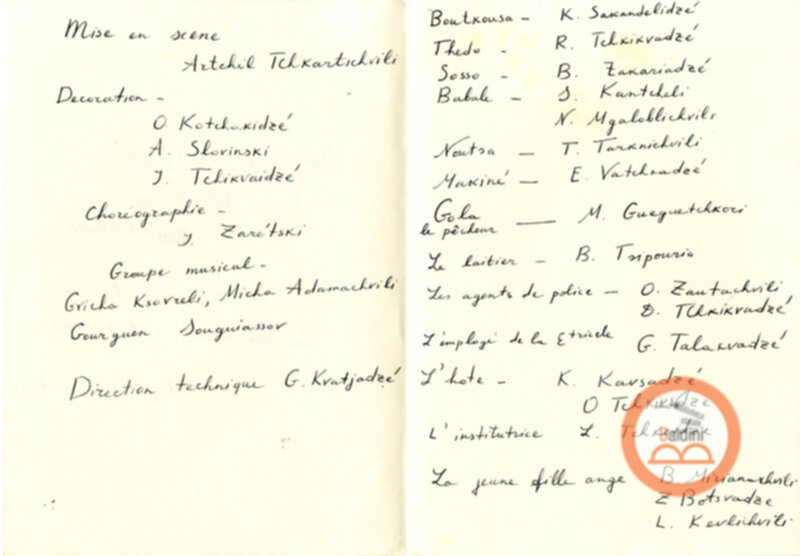 Mise en scène
Artchil Tchkartschvili
Decoration -
O Kotchakidzé
A. Slovinski
J. Tchikvaidzé
Choréographie -
J. Zarétski
Groupe musical -
Gricha Ksovreli, Micha Adamachvili
Gourguen Souguiassov
Direction technique G. Kvatjadzé
Boutkousa - K. Sakandelidzé
Thedo - R. Tchkikvadzé
Sosso - B. Zakariadzé
Babale - S. Kantcheli
N. Mgaloblichvili
Noutsa - T. Tarknichvili
Makiné - E. Vatchnadzé
Gola
le pêcheur — M. Gueguetchkori
Le laitier - B. Tsipouria
Les agents de police - O. Zautachvili
D. Tchkikvadzé
L'employé de la G. Talakvadzé
L'hote - K. Kavsadzé
O Tchkikvadze
L'institutrice L.
La jeune fille ange B. Mirianachvili
Z Botsvadze
L. Kevlichvili
Baldini